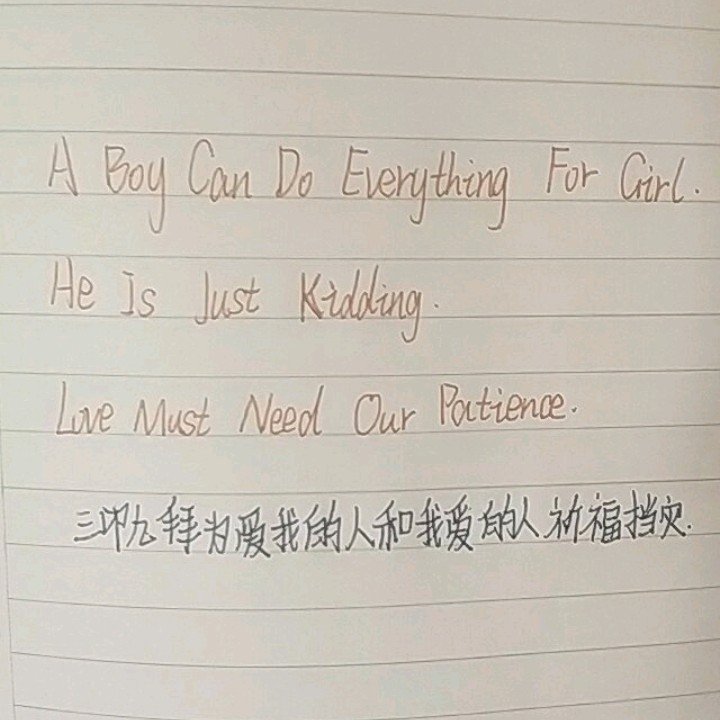 A Boy Can Do Everything For Girl.
He Is Just Kidding.
Love Must Need Our Patience.
三叩九拜为爱我的人和我爱的人祈福挡灾.